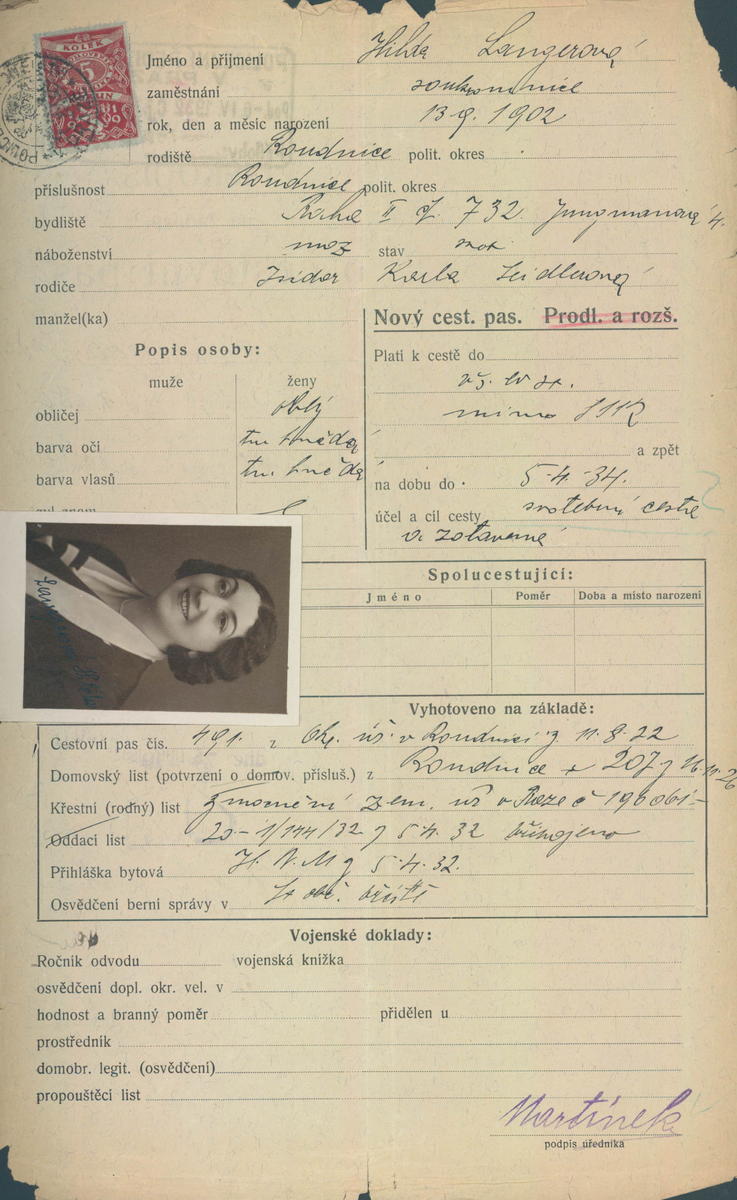 KOLEK
Jméno a přijmení Hilda Langerová
zaměstnání soukromnice
rok, den a měsíc narození 13 9. 1902
rodiště Roudnice polit. okres
příslušnost Roudnice polit. okres
bydliště Praha II čj. 732. Jungmanova 4.
náboženství moz stav
rodiče Isidor Karla Seidlerová
manžel(ka)
Nový cest. pas. Prodl. a rozš.
Popis osoby:
muže ženy
obličej oblý
barva očí tm. hnědá
barva vlasů tm. hnědá
Platí k cestě do
mimo
a zpět
na dobu do 5-4-34.
účel a cíl cesty svatební cesta
Spolucestující:
Jméno Poměr Doba a místo narození
Vyhotoveno na základě:
Cestovní pas čís. 491. z Okr. úř. v Roudnici z 11.8.22
Domovský list (potvrzení o domov. přísluš.) z Roudnice 207 z 16.11.26
Křestní (rodný) list zem. úř v Praze č
Oddací list 20-1/144/32 z 5.4.32 připojeno
Přihláška bytová z 5.4.32.
Osvědčení berní správy v
Vojenské doklady:
Ročník odvodu vojenská knížka
osvědčení dopl. okr. vel. v
hodnost a branný poměr přidělen u
prostředník
domobr. legit. (osvědčení)
propouštěcí list
Martínek
podpis úředníka